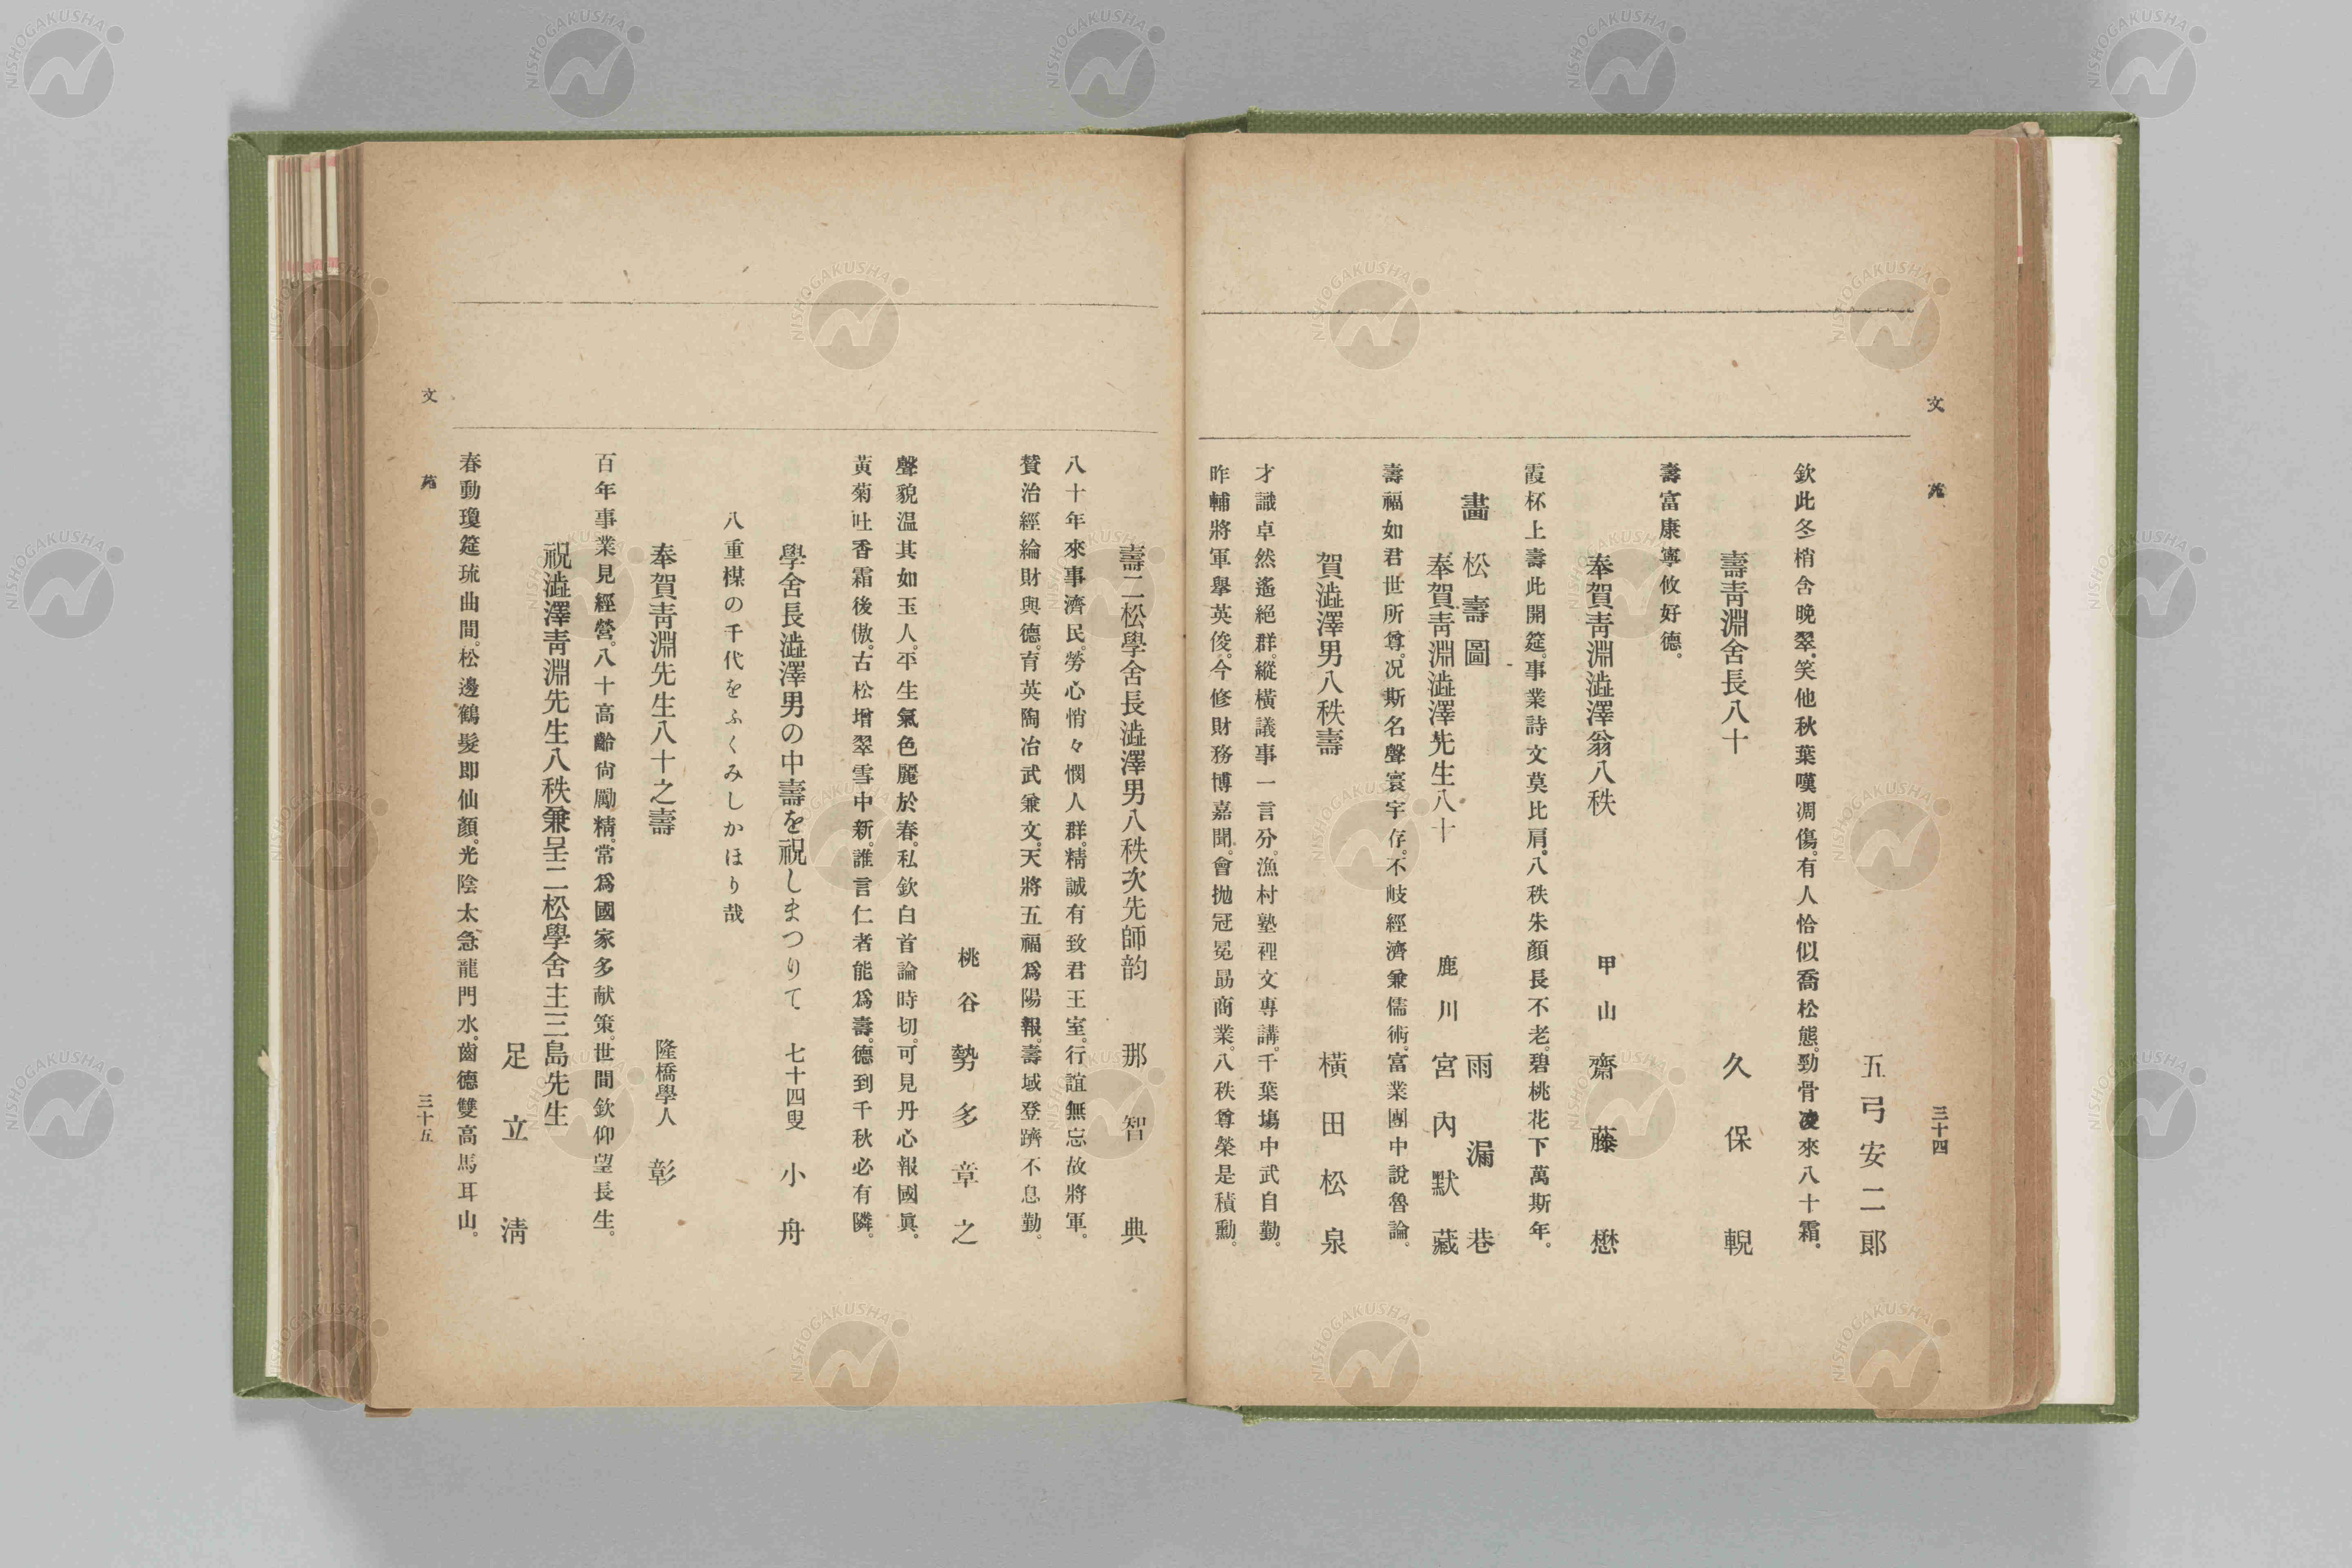 文苑
三十四
五弓安二郎
欽此冬梢含晩翠。笑他秋葉嘆凋傷。有人恰似喬松態。勁骨凌來八十霜。
壽靑淵舍長八十
久保輗
壽富康寧攸好德。
奉賀靑淵澁澤翁八秩
甲山 齋藤懋
霞杯上壽此開筵。事業詩文莫比肩。八秩朱顏長不老。碧桃花下萬斯年。
畫 松壽圖
雨漏巷
奉賀靑淵澁澤先生八十
鹿川 宮內默藏
壽福如君世所尊。况斯名聲寰宇存。不岐經濟兼儒術。富業團中說魯論。
賀澁澤男八秩壽
橫田松泉
才識卓然遙絕群。縱橫議事一言分。漁村塾裡文專講。千葉塲中武自勤。
昨輔將軍擧英俊。今修財務博嘉聞。會抛冠冕勗商業。八秩尊榮是積勳。
壽二松學舍長澁澤男八秩次先師韵
那智典
八十年來事濟民。勞心悄々憫人群。精誠有致君王室。行誼無忘故將軍。
贊治經綸財與德。育英陶冶武兼文。天將五福爲陽報。壽域登躋不息勤。
桃谷 勢多章之
聲貌温其如玉人。平生氣色麗於春。私欽白首論時切。可見丹心報國眞。
黃菊吐香霜後傲。古松增翠雪中新。誰言仁者能爲壽。德到千秋必有隣。
學舍長澁澤男の中壽を祝しまつりて 七十四叟 小舟
八重楳の千代をふくみしかほり哉
奉賀靑淵先生八十之壽
隆橋學人 彰
百年事業見經營。八十高齡尙勵精。常爲國家多献策。世間欽仰望長生。
祝澁澤靑淵先生八秩兼呈二松學舍主三島先生
足立淸
春動瓊筵琉曲間。松邊鶴髮即仙顏。光陰太急龍門水。齒德雙高馬耳山。
文苑
三十五
NISHOGAKUSHA